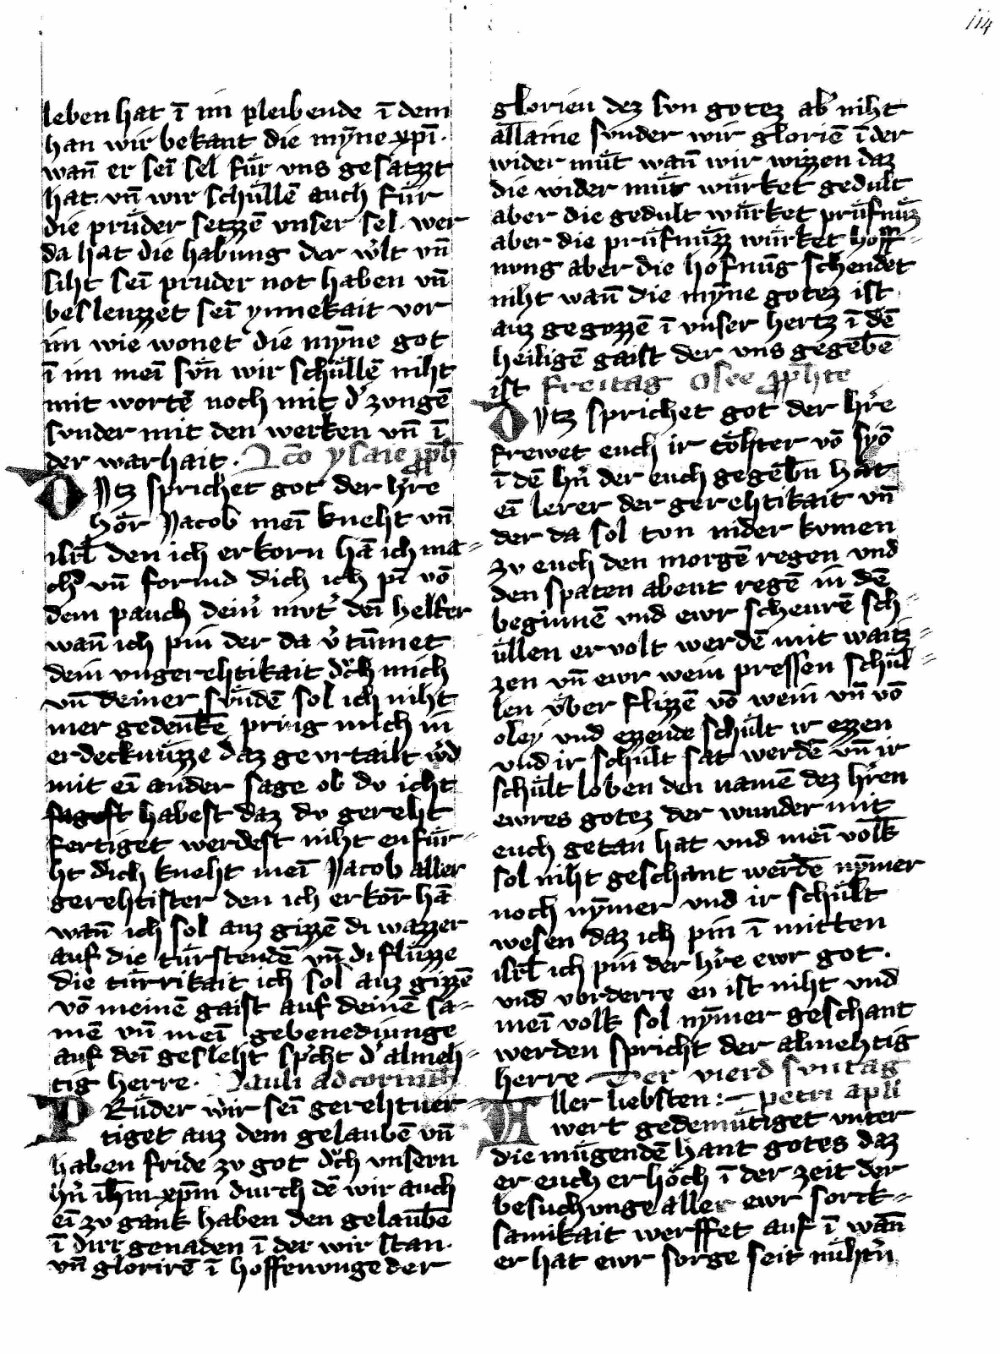 114
leben hat ī im pleibende ī dem
han wir bekant die mẏne xp̄i.
wan̄ er sei᷑ sel fuͤr vns gesatzzt
hat. vn̄ wir schuͤllē auch fuͤr
die pruͤder setzzē vnser sel. wer
da hat die habung der w᷑lt vn̄
siht sei᷑ pruder not haben vn̄
besleuzzet sei᷑ ynnekait vor
im wie wonet die mẏne got
ī im mei᷑ suͤn wir schuͤllē niht
mit wortē noch mit d᷑ zvngē
svnder mit den werken vn̄ ī
der warhait. Lc̄o ysaie ꝓph̄
Ditz sprichet got der h᷑re
hoͤr Jacob mei᷑ kneht vn̄
isrl̄ den ich erkorn hā ich ma=
ch᷑ vn̄ formd dich ich pī vō
dem pauch dein᷑ mvt᷑ dei᷑ helfer
wan̄ ich pin der da v᷑tuͤmet
dein vngerehtikait dͮch mich
vn̄ deiner suͤndē sol ich niht
mer gedenkē pring mich in
erdecknuͤzze daz gevrtailt w᷑d
mit ei᷑ ander sage ob dv icht
sagest habest daz dv gereht
fertiget werdest niht enfuͤr=
ht dich kneht mei᷑ Jacob aller
gerehtister den ich erkorn hā
wan̄ ich sol auz gizzē di wazzer
auf die tuͤrstendē vn̄ di fluͤzze
die tuͤrrikait ich sol auz gizzē
vō meinē gaist auf deinē sa=
mē vn̄ mei᷑ gebenediunge
auf dei᷑ gesleht sp᷑cht d᷑ almeh=
tig herre. Pauli ad corinth̄
Pruͤder wir sei᷑ gerehtuer
tiget auz dem gelaubē vn̄
haben fride zv got dͮch vnsern
h᷑n ih̄m xp̄m durch dē wir auch
ei᷑ zv gank haben den gelaubē
ī dirr genaden ī der wir stan.
vn̄ glorirē ī hoffenvnge der
glorien dez svn gotez ab᷑ niht
allaine svnder wir gloriē ī der
wider muͤt wan̄ wir wizzen daz
die wider muͤt wuͤrket gedult
aber die gedult wuͤrket pruͤfnuͤzz
aber die pruͤfnuͤzz wuͤrket hoff=
nvng aber die hofnūg schendet
niht wan̄ die mẏne gotez ist
auz gegozzē ī vnser hertz ī dē
heiligē gaist der vns gegebē
ist Freitag Osee ꝓph̄te
Ditz sprichet got der h᷑re
frewet euch ir toͤhter vō syō
ī dē h᷑n der euch gegebn̄ hat
ei᷑ lerer der gerehtikait vn̄
der da sol tvn nider kvmen
zv euch den morgē regen vnd
den spaten abent regē in dē
beginnē vnd ewr scheurē sch=
uͤllen ervolt werdē mit waitz=
zen vn̄ ewr wein pressen schuͤl=
len vͤber flizzē vō wein vn̄ vō
oley vnd ezzende schuͤlt ir ezzen
vnd ir schuͤlt sat werdē vn̄ ir
schuͤlt loben den namē dez h᷑ren
ewres gotez der wunder mit
euch getan hat vnd mei᷑ volk
sol niht geschant werdē nẏmer
noch nẏmer vnd ir schuͤlt
wesen daz ich pin ī mitten
isrl̄ ich pin der h᷑re ewr got.
vnd vorderre en ist niht vnd
mei᷑ volk sol nẏmer geschant
werden spricht der almehtig
herre Der vierd svntag
Aller liebsten :~ petri apl̄i
wert gedemuͤtiget vnter
die muͤgendē hant gotes daz
er euch erhoͤch ī der zeit der
besuchvnge aller ewr sork=
samikait werffet auf ī wan̄
er hat ewr sorge seit nuͤhtn᷑